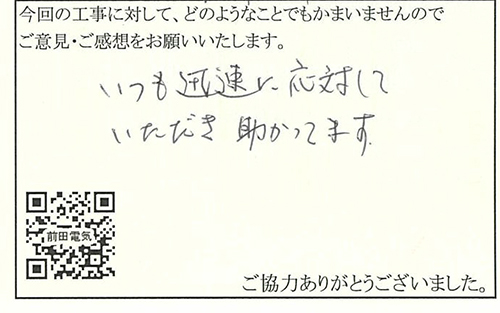 今回の工事に対して、どのようなことでもかまいませんので
ご意見・ご感想をお願いいたします。
いつも迅速に応対して
いただき助かってます
前田電気
ご協力ありがとうございました。